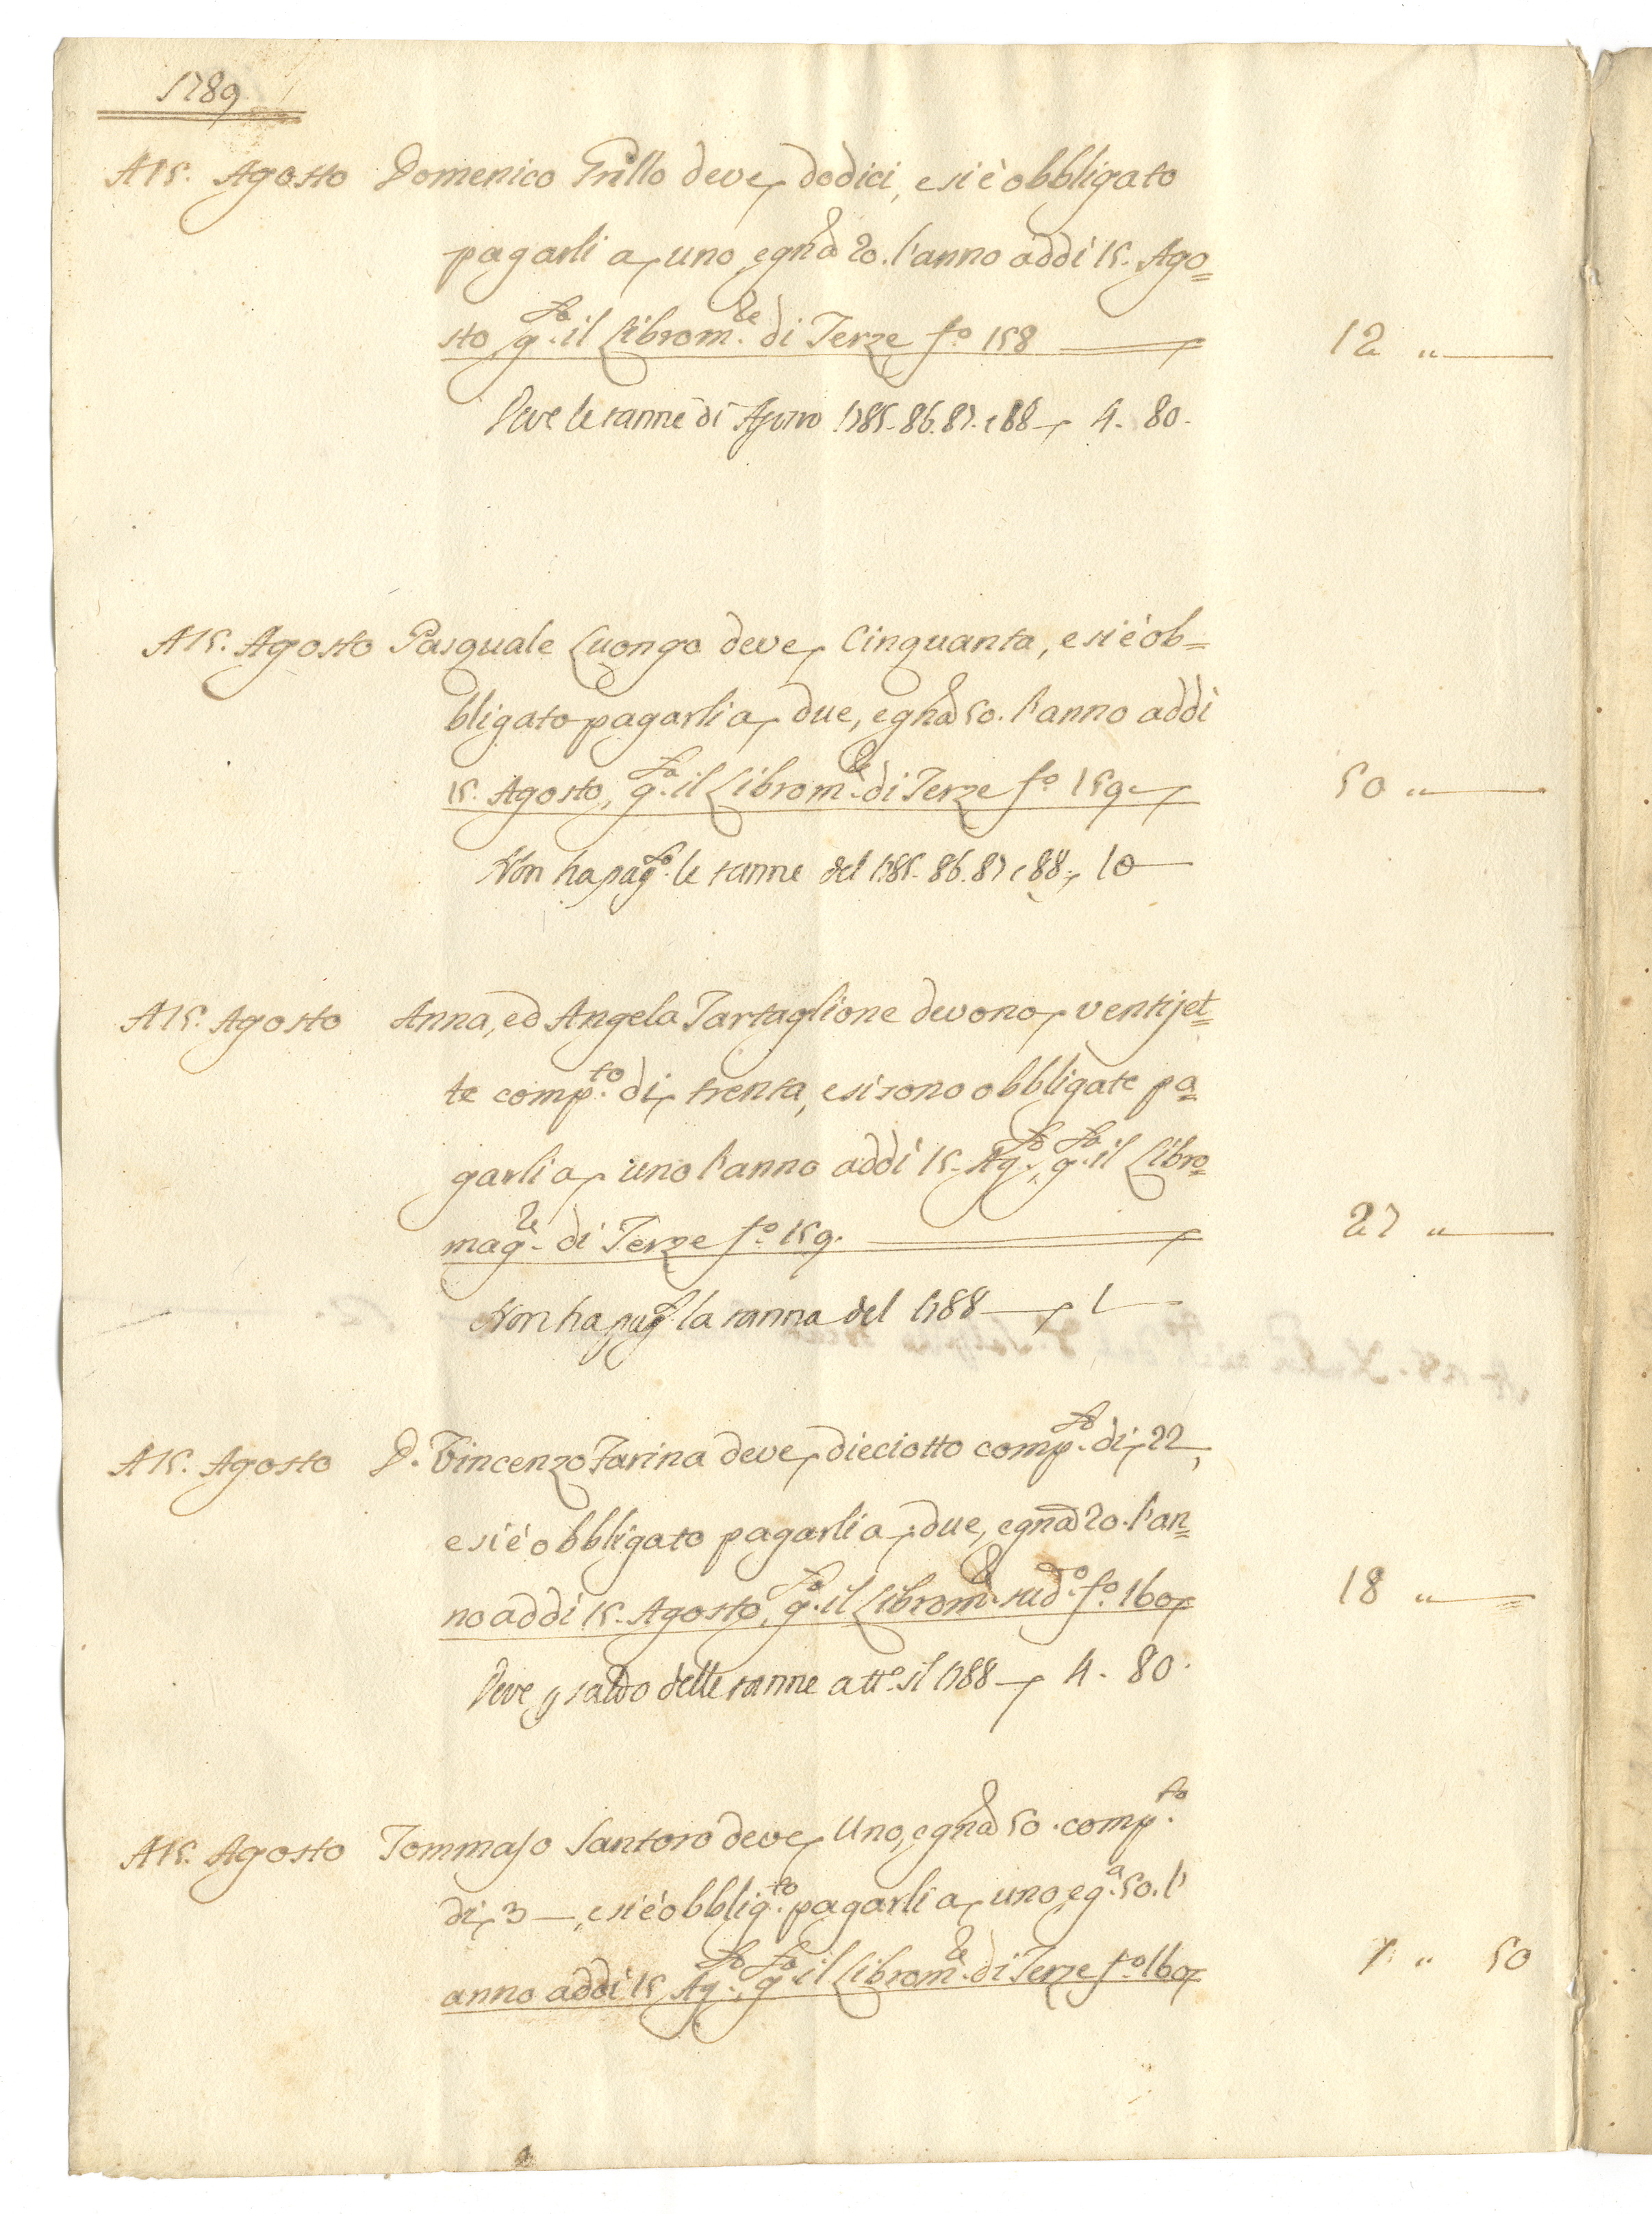 1789
A 15. Agosto Domenico Grillo deve dodici, e si è obbligato
pagarli a uno, e gna 20. l'anno addì 15. Ago=
sto, gto. il Librom.le di Terze fo. 158 12 "
Deve le tanne di Agosto 1785. 86. 87. e 88 4. 80.
A 15. Agosto Pasquale Luongo deve Cinquanta, e si è ob=
bligato pagarli a due, e gna 50. l'anno addì
15. Agosto, gto. il Librom.le di Terze fo. 159 50 "
Non ha pagto. le tanne del 1785. 86. 87 e 88 10
A 15. Agosto Anna, ed Angela Tartaglione devono ventiset=
te comp.to di trenta, e si sono obbligate pa=
garli a uno l'anno addì 15. Ag.to, gto. il Libro
mag.le di Terze fo. 159. 27 "
Non ha pagto la tanna del 1788 1
A 15. Agosto D. Vincenzo Farina deve dieciotto comp.to di 22,
e si è obbligato pagarli a due, e gna 20. l'an=
no addì 15. Agosto, gto. il Librom.le sud.o fo. 160 18 "
Deve p saldo delle tanne atto. il 1788 4. 80.
A 15. Agosto Tommaso Santoro deve Uno, e gna 50. comp.to
di 3 —, e si è obblig.to pagarli a uno, e g.a 50. l'
anno addì 15 Ag.to, gto. il Librom.le di Terze fo. 160 1 " 50